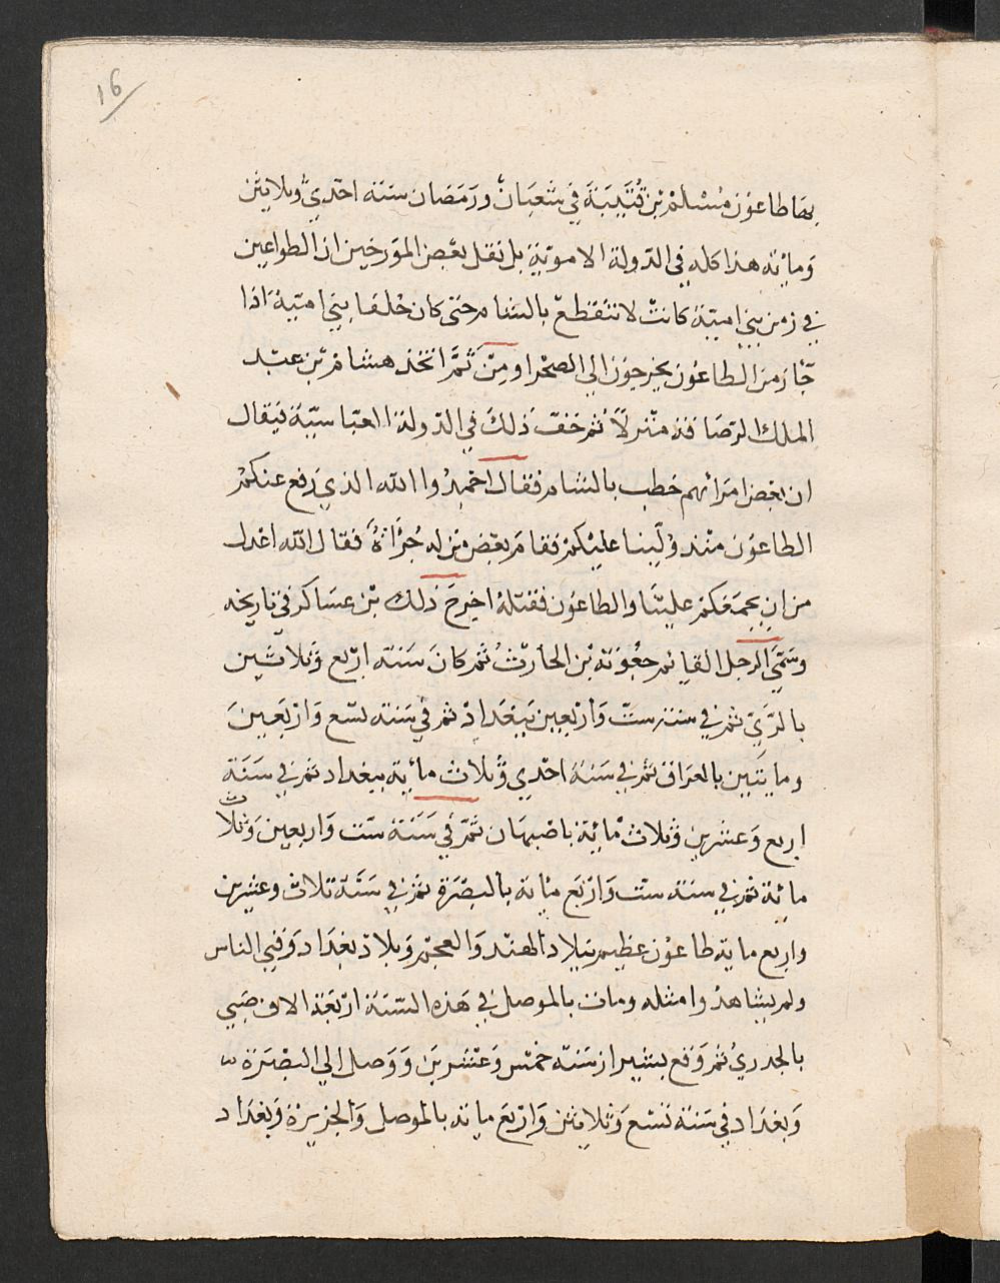 16
بها طاعون مُسْلم بن قُتَيبَةَ في شعبَان ورَمَضان سَنَه احدي وثلاثين
وَمائه هذا كله في الدّولة الامويّة بل نقل بعض المؤرخين ان الطواعين
في زمن بني اميّة كانت لا تنقطع بالشام حتى كان خلفا بني اميّة اذا
جَا زمن الطاعون يخرجون الي الصحرا ومن ثَمَّ اتخذ هشام بن عبْد
الملك الرّصَافة منزلًا ثم خفّ ذلكَ في الدولة العبّاسيّة فيقال
ان بعض امرائهم خطب بالشام فقال احمدُوا الله الذي رفع عنكم
الطاعون منذ وُلّينا عليْكم فقام بعض من له جُرْأةٌ فقال الله اعدل
من ان يجمعَكم عليْنا والطاعون فقتلهُ اخرجَ ذلك بن عسَاكر في تاريخه
وسَمّيَ الرجل القايم جعْوَنه بن الحارثُ ثم كانَ سَنَه اربع وثلاثين
بالرّيّ ثم في سنه ستّ وَارْبعين ببغدَاد ثم في سَنه تسع وَارْبَعينَ
ومايتَين بالعرَاق ثم في سَنَهُ احدي وثلاث مائيه ببغداد ثم في سَنَة
اربع وَعشرين وثلاث مائية باصبهَان ثمّ في سَنَة ستت واربعين وَثلاث
مائة ثم في سنه ستّ وَارْبَع مائة بالبصْرَة ثم في سَنَة ثلاث وعشرين
واربع مايه طاعون عظيم ببلاد الهند وَالعجم وَبلاد بغدَاد وَفني الناس
ولم يشاهدُوا مثله ومات بالموصل في هَذه السّنَة ارْبَعَة الاف صَبي
بالجدريُ ثم وَقع بشيراز سَنَه خمس وَعشرينَ وَوَصل الي البصْرَة
وَبغدَاد في سَنَة تسْع وَثلاثين وَارْبَع مايه بالموصل وَالجزيرة وَبغدَاد